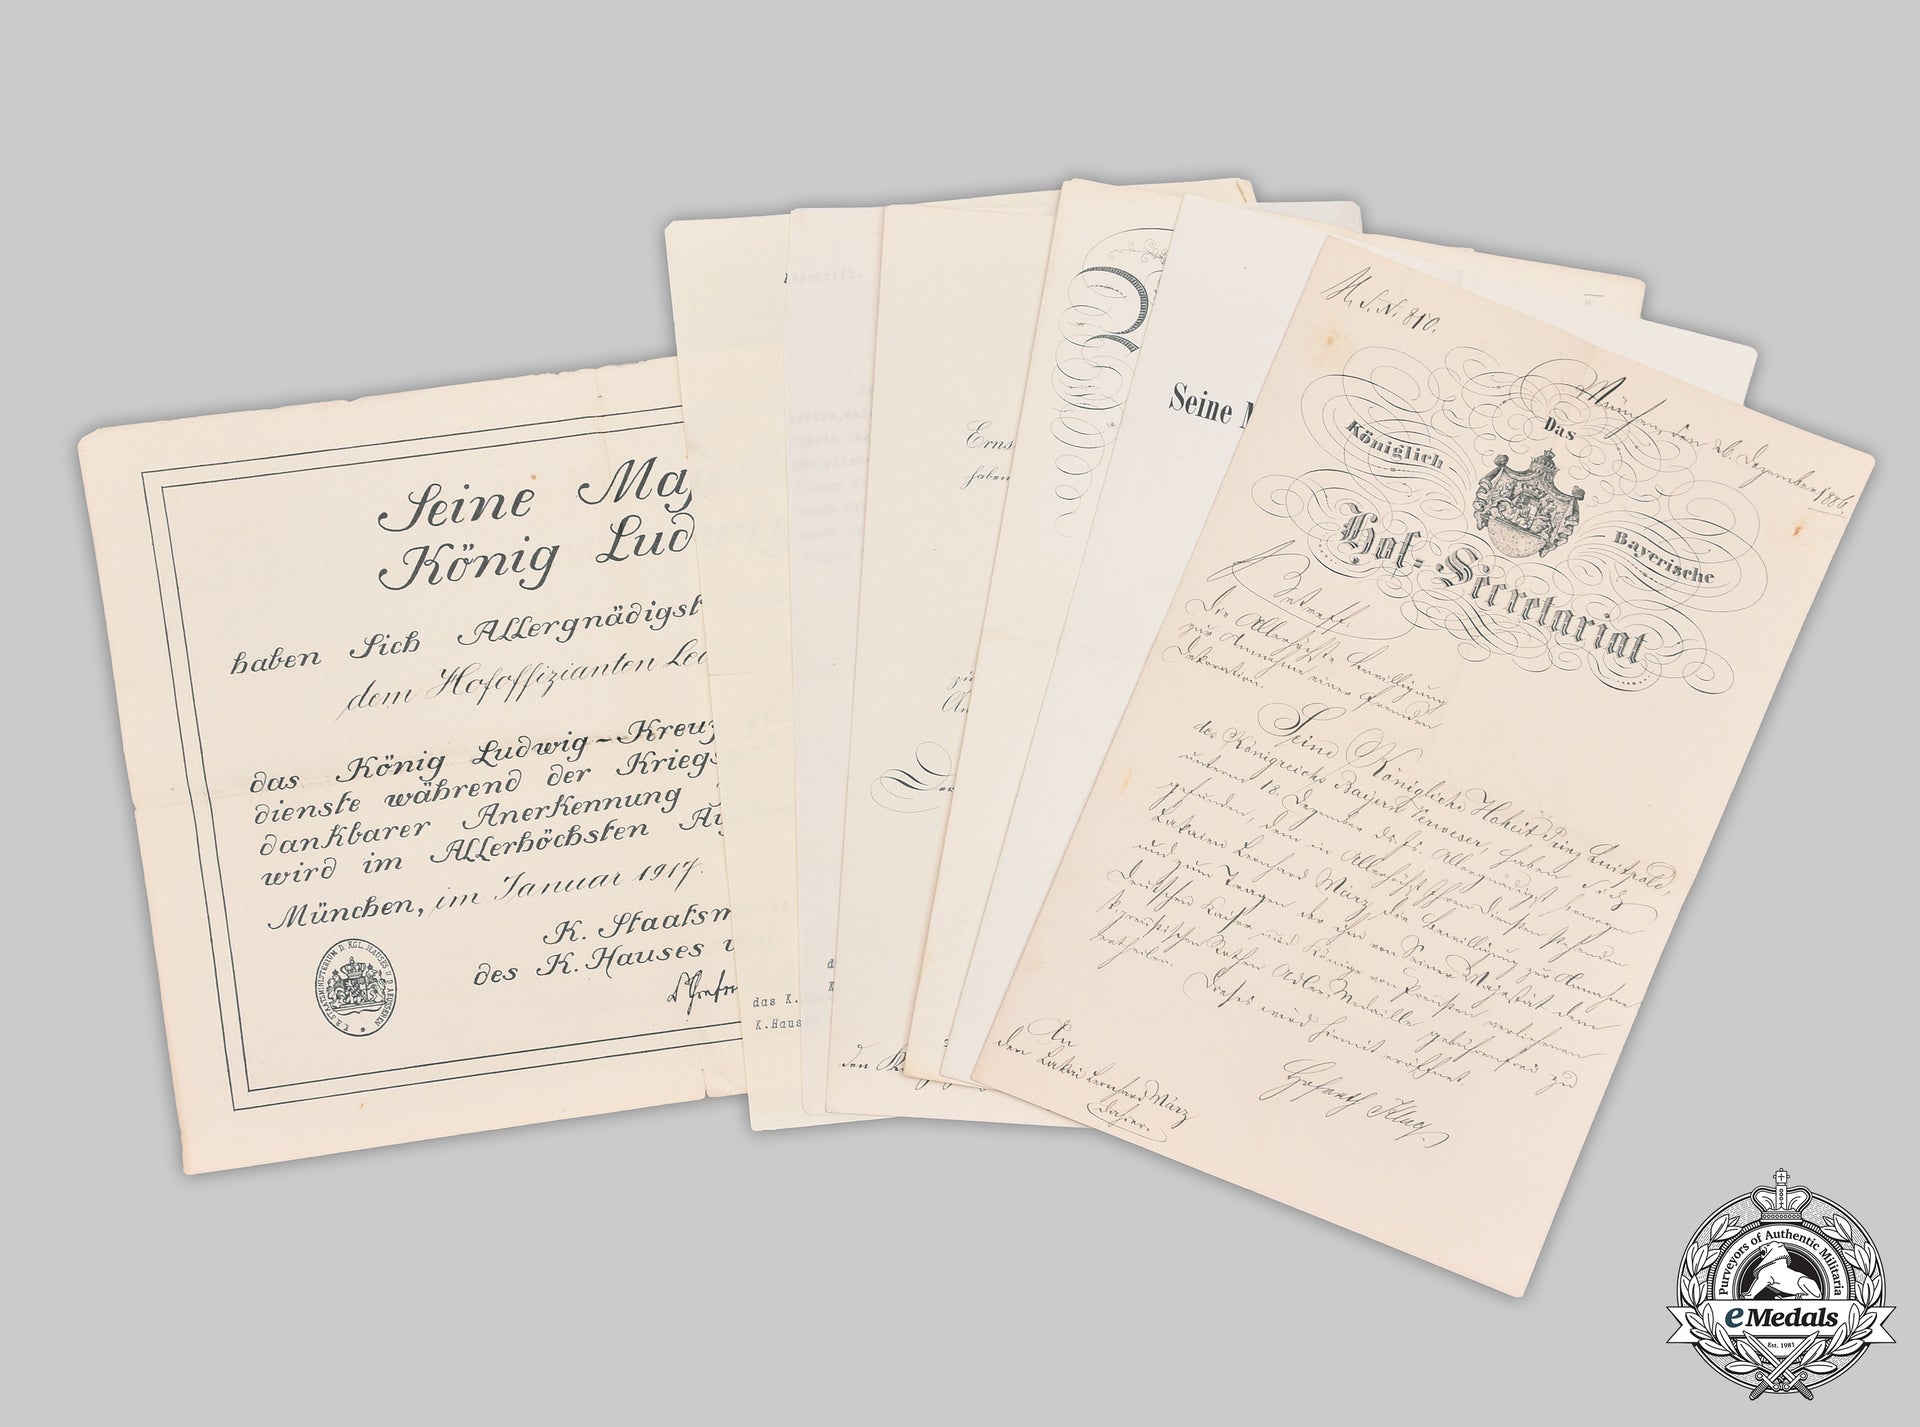 Seine Maj
König Lud
haben Sich Allergnädigst
dem Hofoffizianten Leo
das König Ludwig-Kreuz
dienste während der Kriegs
dankbarer Anerkennung
wird im Allerhöchsten Au
München, im Januar 1917.
K. Staatsm
des K. Hauses u
K.B. STAATSMINISTERIUM D. KGL. HAUSES U. D. ÄUSSEREN
Abschrift.
das K.
K.Haus
Erns
haben
zu
den K
Seine M
N. 810.
München, den 26. Dezember 1886.
Das
Königlich
Bayerische
Hof-Secretariat
Betreff:
Die Allerhöchste Bewilligung
zur Annahme einer fremden
Dekoration.
Seine Königliche Hoheit Prinz Luitpold,
des Königreichs Bayern Verweser, haben Sich
unterm 18. Dezember ds. Js. Allergnädigst bewogen
gefunden, dem in Allerhöchst Ihren Diensten stehenden
Lakaien Bernhard März die Bewilligung zur Annahme
und zum Tragen der ihm von Seiner Majestät dem
Deutschen Kaiser und Könige von Preußen verliehenen
k. preußischen Rothen Adler-Medaille gebührenfrei zu
ertheilen.
Dieses wird hiemit eröffnet.
Hofrath Klug.
An
den Lakai Bernhard März
dahier.
Purveyors of Authentic Militaria
eMedals
Est. 1981